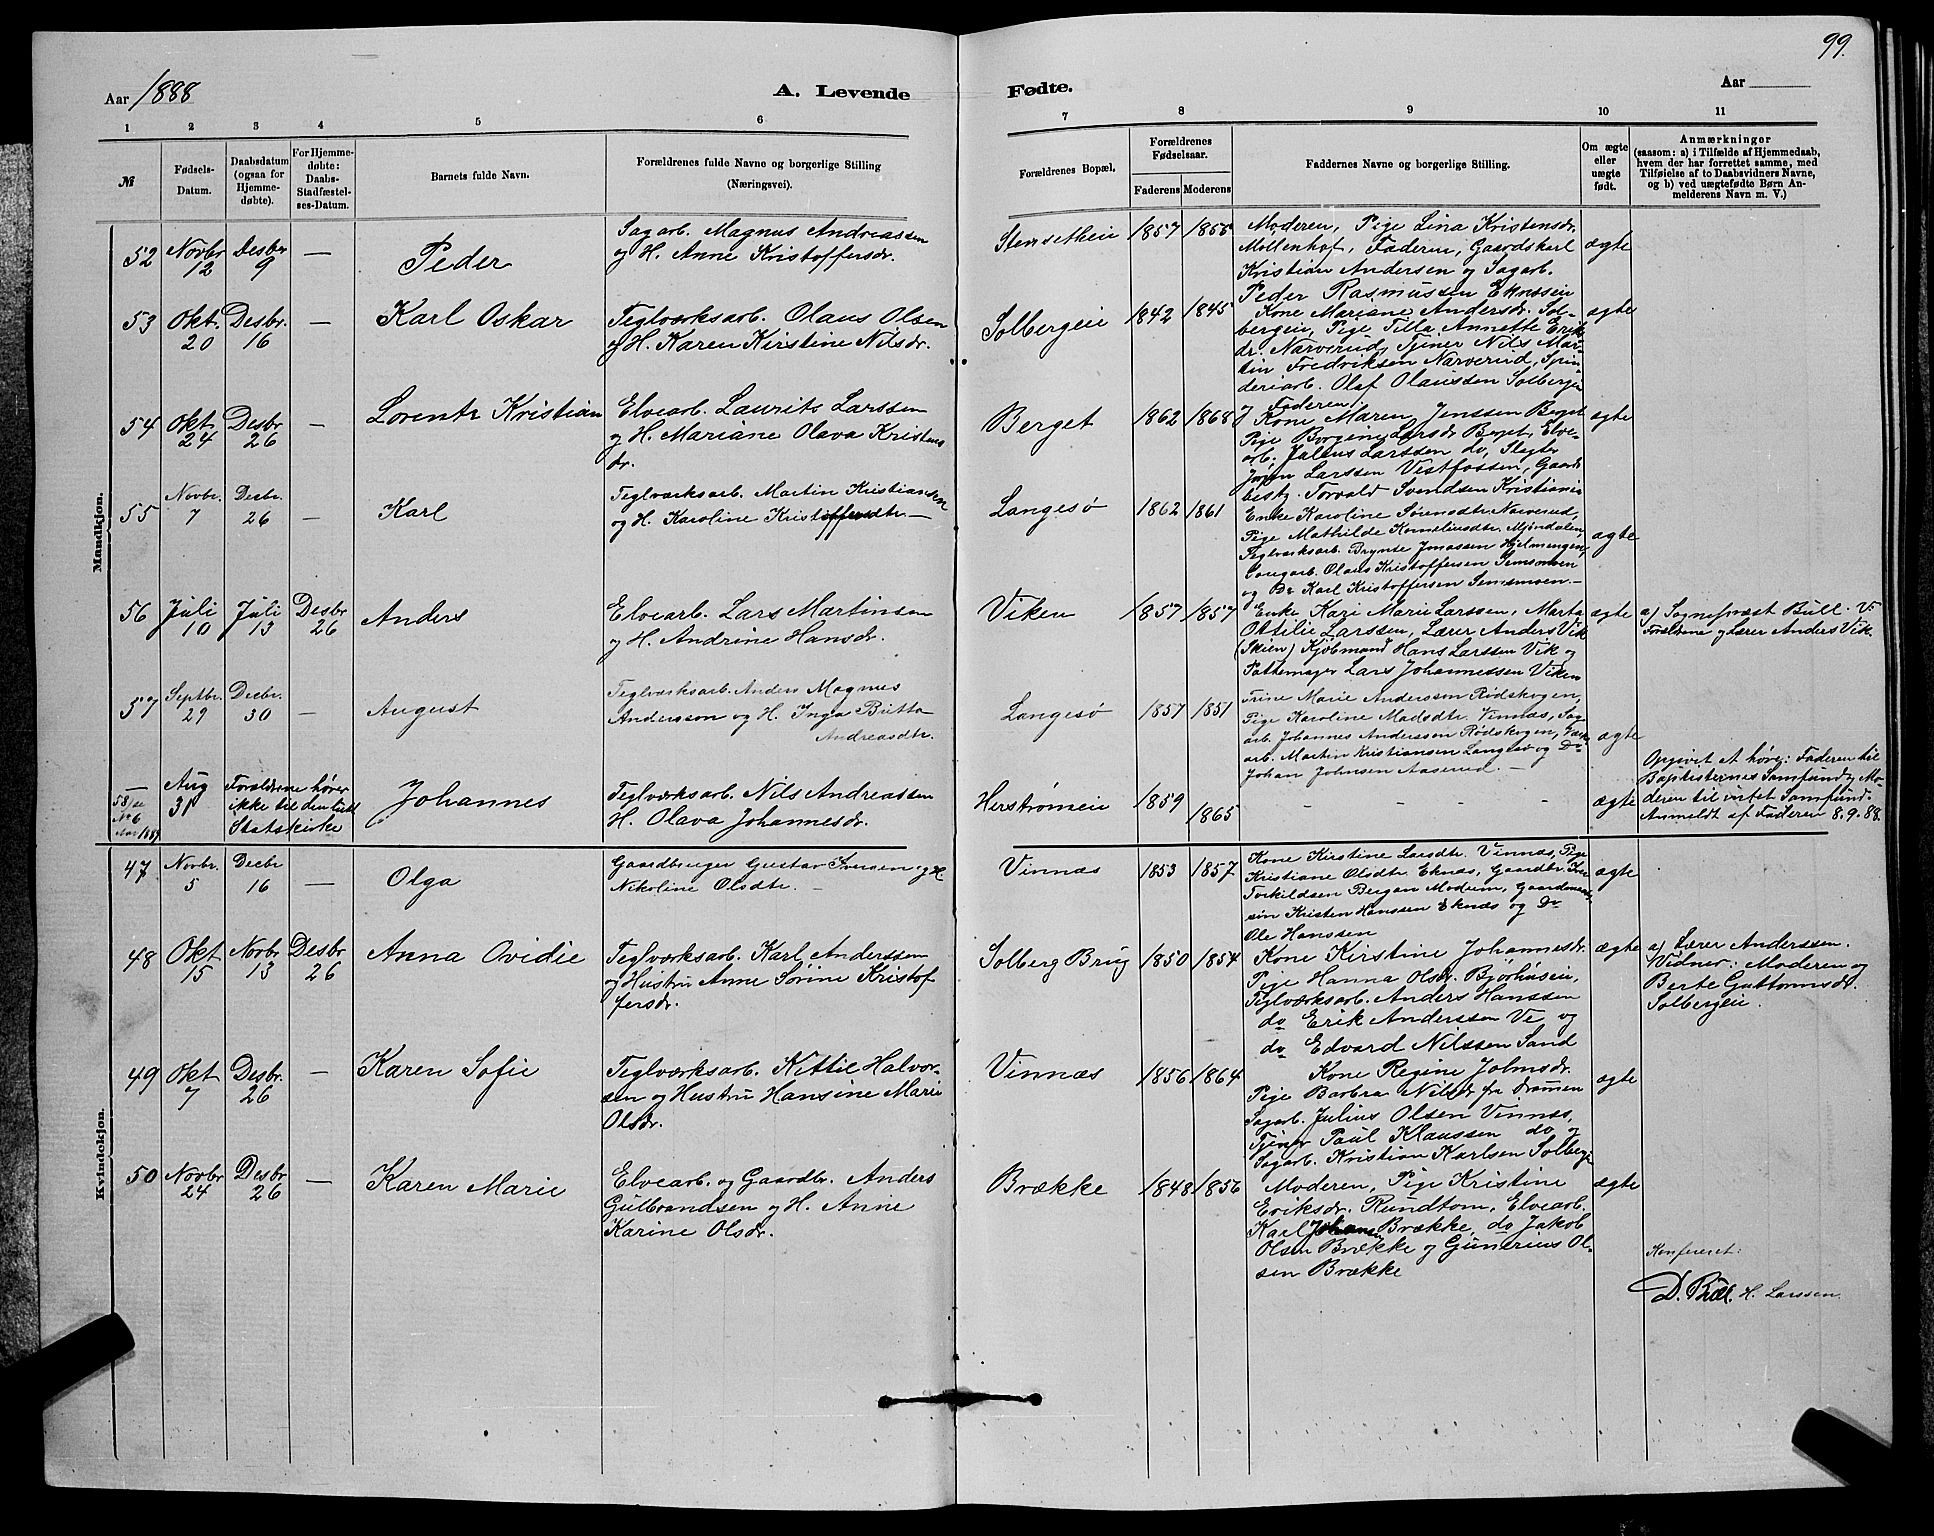 99.
Aar 1888
A. Levende Fødte.
Aar
1 2 3 4 5 6 7 8 9 10 11
№
Fødsels-Datum.
Daabsdatum (ogsaa for Hjemme-døbte).
For Hjemme-døbte: Daabs-Stadfæstel-ses-Datum.
Barnets fulde Navn.
Forældrenes fulde Navne og borgerlige Stilling (Næringsvei).
Forældrenes Bopæl.
Forældrenes Fødselsaar.
Faderens Moderens
Faddernes Navne og borgerlige Stilling.
Om ægte eller uægte født.
Anmærkninger
(saasom: a) i Tilfælde af Hjemmedaab,
hvem der har forrettet samme, med
Tilføielse af to Daabsvidners Navne,
og b) ved uægtefødte Børn An-
melderens Navn m. V.)
Mandkjøn.
52 Novbr 12 Desbr 9 — Peder
Sagarb. Magnus Andreassen
og H. Anne Kristoffersdr.
Stensetheie 1857 1855
Moderen, Pige Lina Kristensdr.
Mollenhof, Faderen, Gaardskarl
Kristian Andersen og Sagarb.
Peder Rasmussen Eknæseie
ægte
53 Okt. 20 Desbr. 16 — Karl Oskar
Teglværksarb. Olaus Olsen
og H. Karen Kirstine Nilsdr.
Solbergeie 1842 1845
Kone Mariane Andersdr. Sol-
bergeie, Pige Tilla Annette Erik
dr. Narverud, Tjener Nils Mar-
tin Fredriksen Narverud, Spin-
deriarb. Olaf Olaussen Solbergeie
og Faderen
ægte
54 Okt. 24 Desbr 26 — Lorents Kristian
Elvearb. Laurits Larssen
og H. Mariane Olava Kristens
dr.
Berget 1862 1868
Kone Maren Jenssen Berget
Pige Borgine Larsdr Berget, Elve-
arb. Julius Larssen do, Slagter
Jørgen Larssen Vestfossen, Gaard
besty. Torvald Svendsen Kristiania
ægte
55 Novbr. 7 Desbr. 26 — Karl
Teglværksarb. Martin Kristiansen
og H. Karoline Kristoffersdtr. —
Langesø 1862 1861
Enke Karoline Sørensdtr. Narverud,
Pige Mathilde Korneliusdtr. Mjøndalen,
Teglværksarb. Brynte Jonassen Hjelmengen,
Olaus Kristoffersen Semsmoen
og Do Karl Kristoffersen Semsmoen. —
ægte
56 Juli 10 Juli 13 Desbr 26 Anders
Elvearb. Lars Martinsen
og H. Andrine Hansdr.
Viken 1857 1857
Enke Kari Marie Larssen, Marta
Ottilie Larssen, Lærer Anders Vik
(Skien) Kjøbmand Hans Larssen Vik og
Pottemager Lars Johannessen Viken
ægte
a) Sogneprest Bull. V:
Forældrene og Lærer Anders Vik.
57 Septbr. 29 Decbr. 30 — August
Teglværksarb. Anders Magnus
Andersson og H. Inga Britta
Andreasdtr.
Langesø 1857 1851
Trine Marie Anderssen Rødskogen,
Pige Karoline Madsdtr. Vinnæs, Sag
arb. Johannes Anderssen Rødskogen, Værk
arb. Martin Kristiansen Langesø og Do
Johan Johnsen Aaserud. —
ægte
—
58/se No 6 Aar 1889 Aug 31
Forældrene hører
ikke til den luth
Statskirke
Johannes
Teglværksarb. Nils Andreassen
H. Olava Johannesdr.
Herstrømeie 1859 1865
- - - -
ægte
Opgivet at høre: Faderen til
Baptisternes Samfund og Mo-
deren til intet Samfund.
Anmeldt af Faderen 8.9.88.
Kvindekjøn.
47 Novbr. 5 Decbr 16 — Olga
Gaardbruger Gustav Iversen og H.
Nikoline Olsdtr. —
Vinnæs 1853 1857
Kone Kirstine Larsdtr. Vinnæs, Pige
Kristiane Olsdtr Eknæs, Gaardbr. Iver
Torkildsen Bergan Modum, Gaardmands
søn Kristen Hanssen Eknæs og Do
Ole Hanssen
ægte
48 Okt 15 Novbr 13 Desbr 26 Anna Ovidie
Teglværksarb. Karl Anderssen
og Hustru Anne Sørine Kristof
fersdr.
Solberg Brug 1850 1854
Kone Kirstine Johannesdr.
Pige Hanna Olsdr. Bjørhuseie,
Teglværksarb. Anders Hanssen
do Erik Anderssen Ve og
do Edvard Nilssen Sand
ægte
a) Lærer Anderssen.
Vidner: Moderen og
Berte Guttormsdr.
Solbergeie.
49 Okt 7 Desbr. 26 — Karen Sofie
Teglværksarb. Kittil Halvor-
sen og Hustru Hansine Marie
Olsdr.
Vinnæs 1856 1864
Kone Regine Johnsdr.
Pige Barbra Nilsdr fra Dramen
Sagarb. Julius Olsen Vinnæs,
Tjener Paul Klaussen do og
Sagarb. Kristian Karlsen Solbergeie
ægte
50 Novbr 24 Desbr 26 — Karen Marie
Elvearb. og Gaardbr. Anders
Gulbrandsen og H. Anne
Karine Olsdr.
Brække 1848 1856
Moderen, Pige Kristine
Eriksdr. Rundtom, Elvearb.
Karl Johansen Brække, do Jakob
Olsen Brække og Gunerius Ol-
sen Brække
ægte
Konfereret:
D. Bull. H. Larssen.